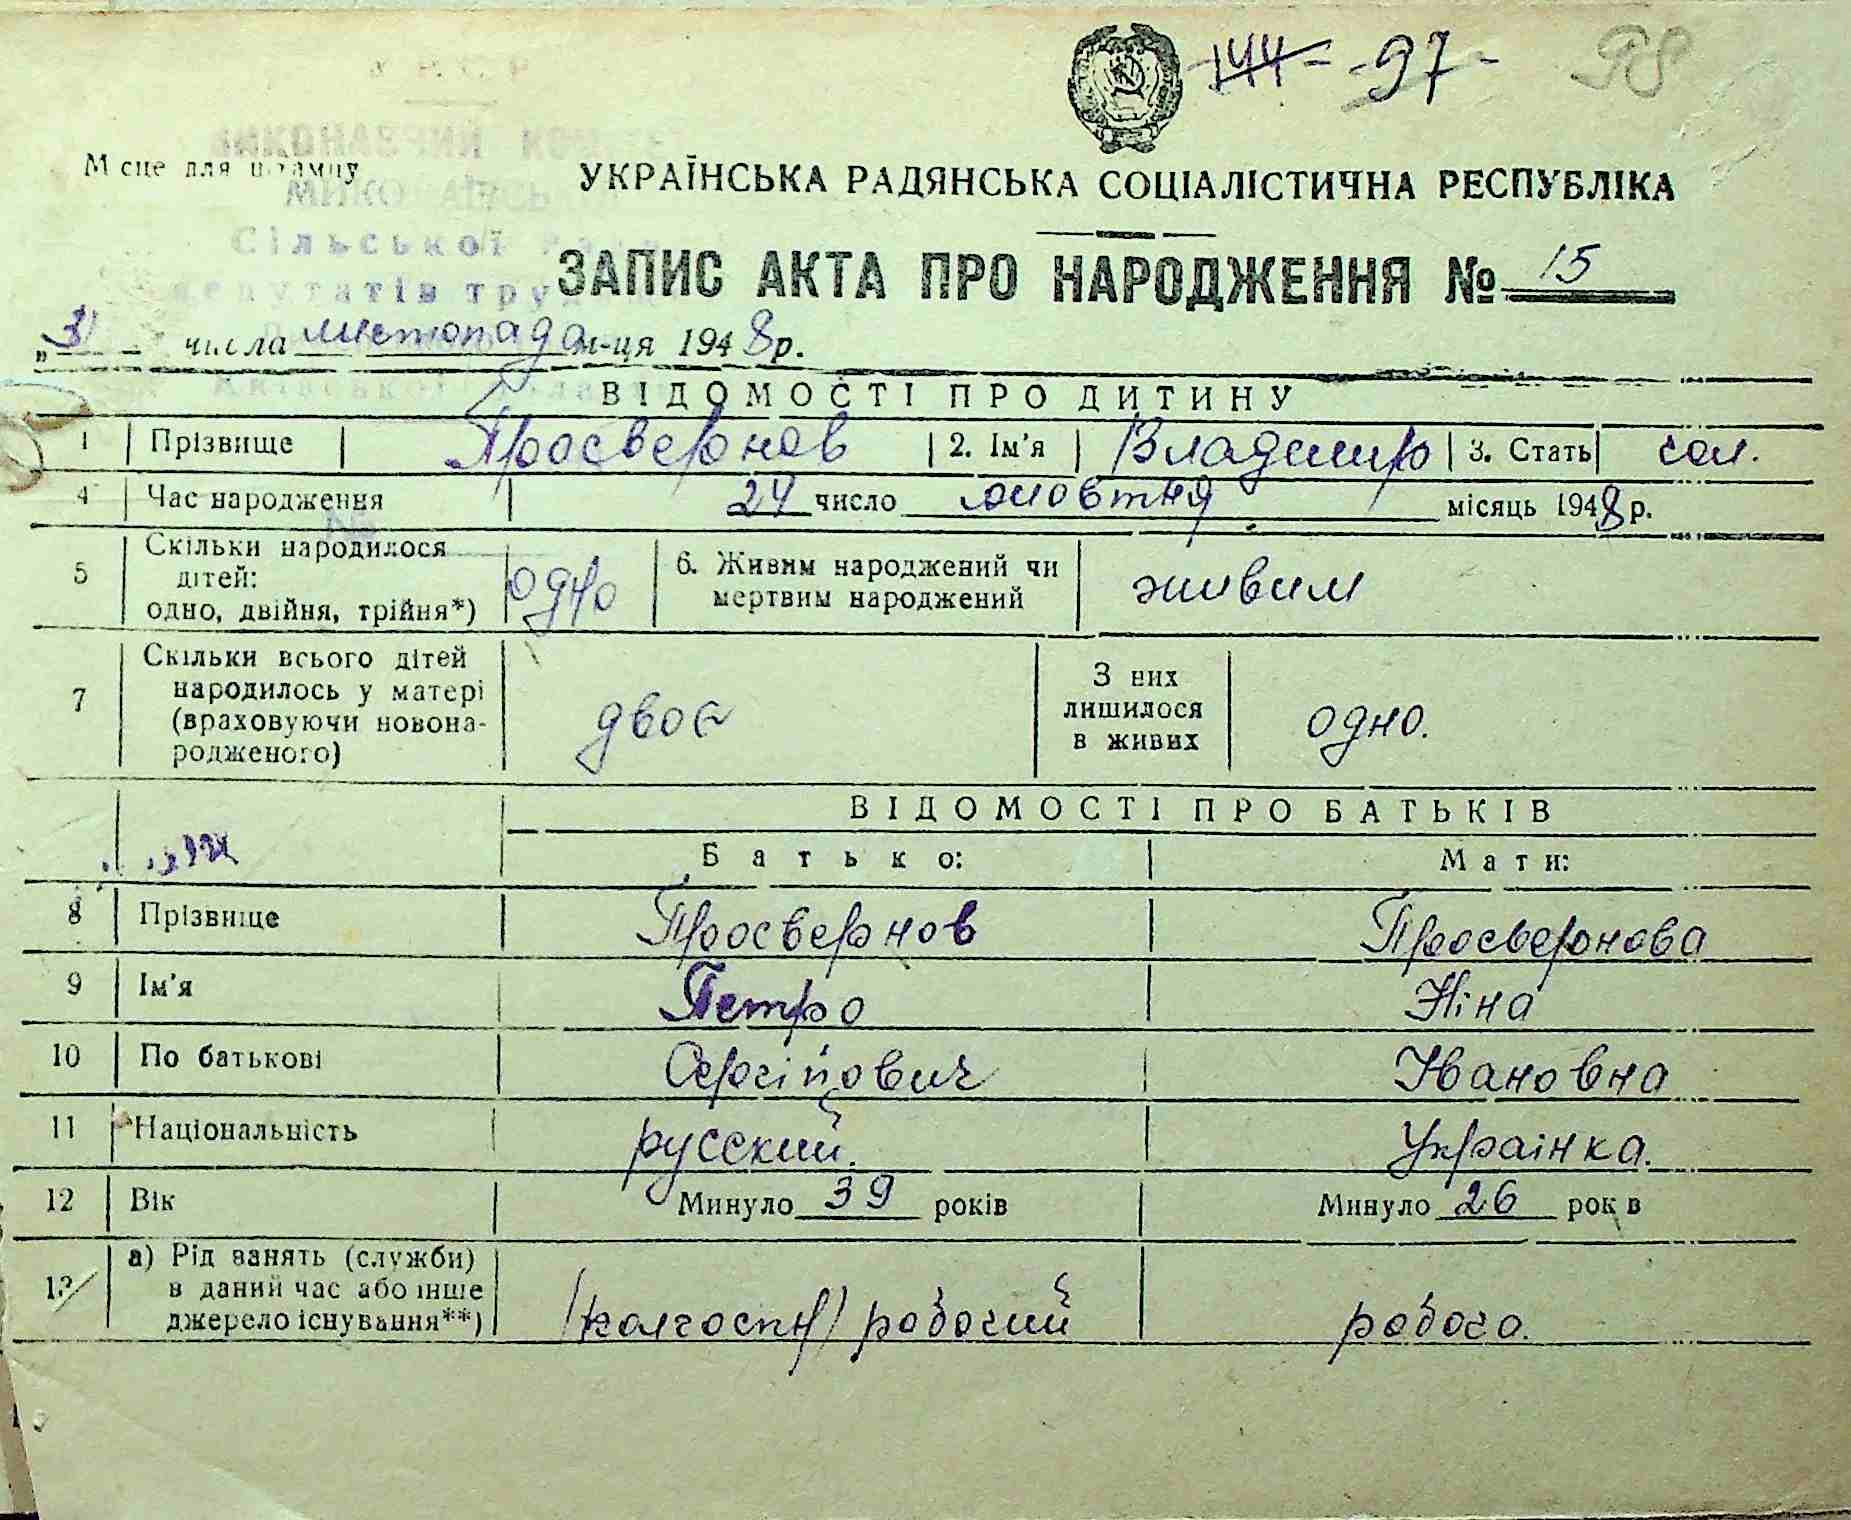 У. Р. С. Р
144 - 97 - 98
ВИКОНАВЧИЙ
Місце для штампу
УКРАЇНСЬКА РАДЯНСЬКА СОЦІАЛІСТИЧНА РЕСПУБЛІКА
Сільської
депутатів труд
ЗАПИС АКТА ПРО НАРОДЖЕННЯ № 15
„3" числа листопада м-ця 1948 р.
Київської
ВІДОМОСТІ ПРО ДИТИНУ
1 Прізвище Просвернов 2. Ім'я Владимир 3. Стать чол.
4 Час народження 24 число жовтня місяць 1948 р.
5 Скільки народилося
дітей:
одно, двійня, трійня*) одно 6. Живим народжений чи
мертвим народжений живим
7 Скільки всього дітей
народилось у матері
(враховуючи новона-
родженого) двоє З них
лишилося
в живих одно.
ВІДОМОСТІ ПРО БАТЬКІВ
Батько: Мати:
8 Прізвище Просвернов Просвернова
9 Ім'я Петро Ніна
10 По батькові Архіпович Івановна
11 Національність русский. Українка.
12 Вік Минуло 39 років Минуло 26 років
13 а) Рід занять (служби)
в даний час або інше
джерело існування**) (колгоспн) робочий робоча.